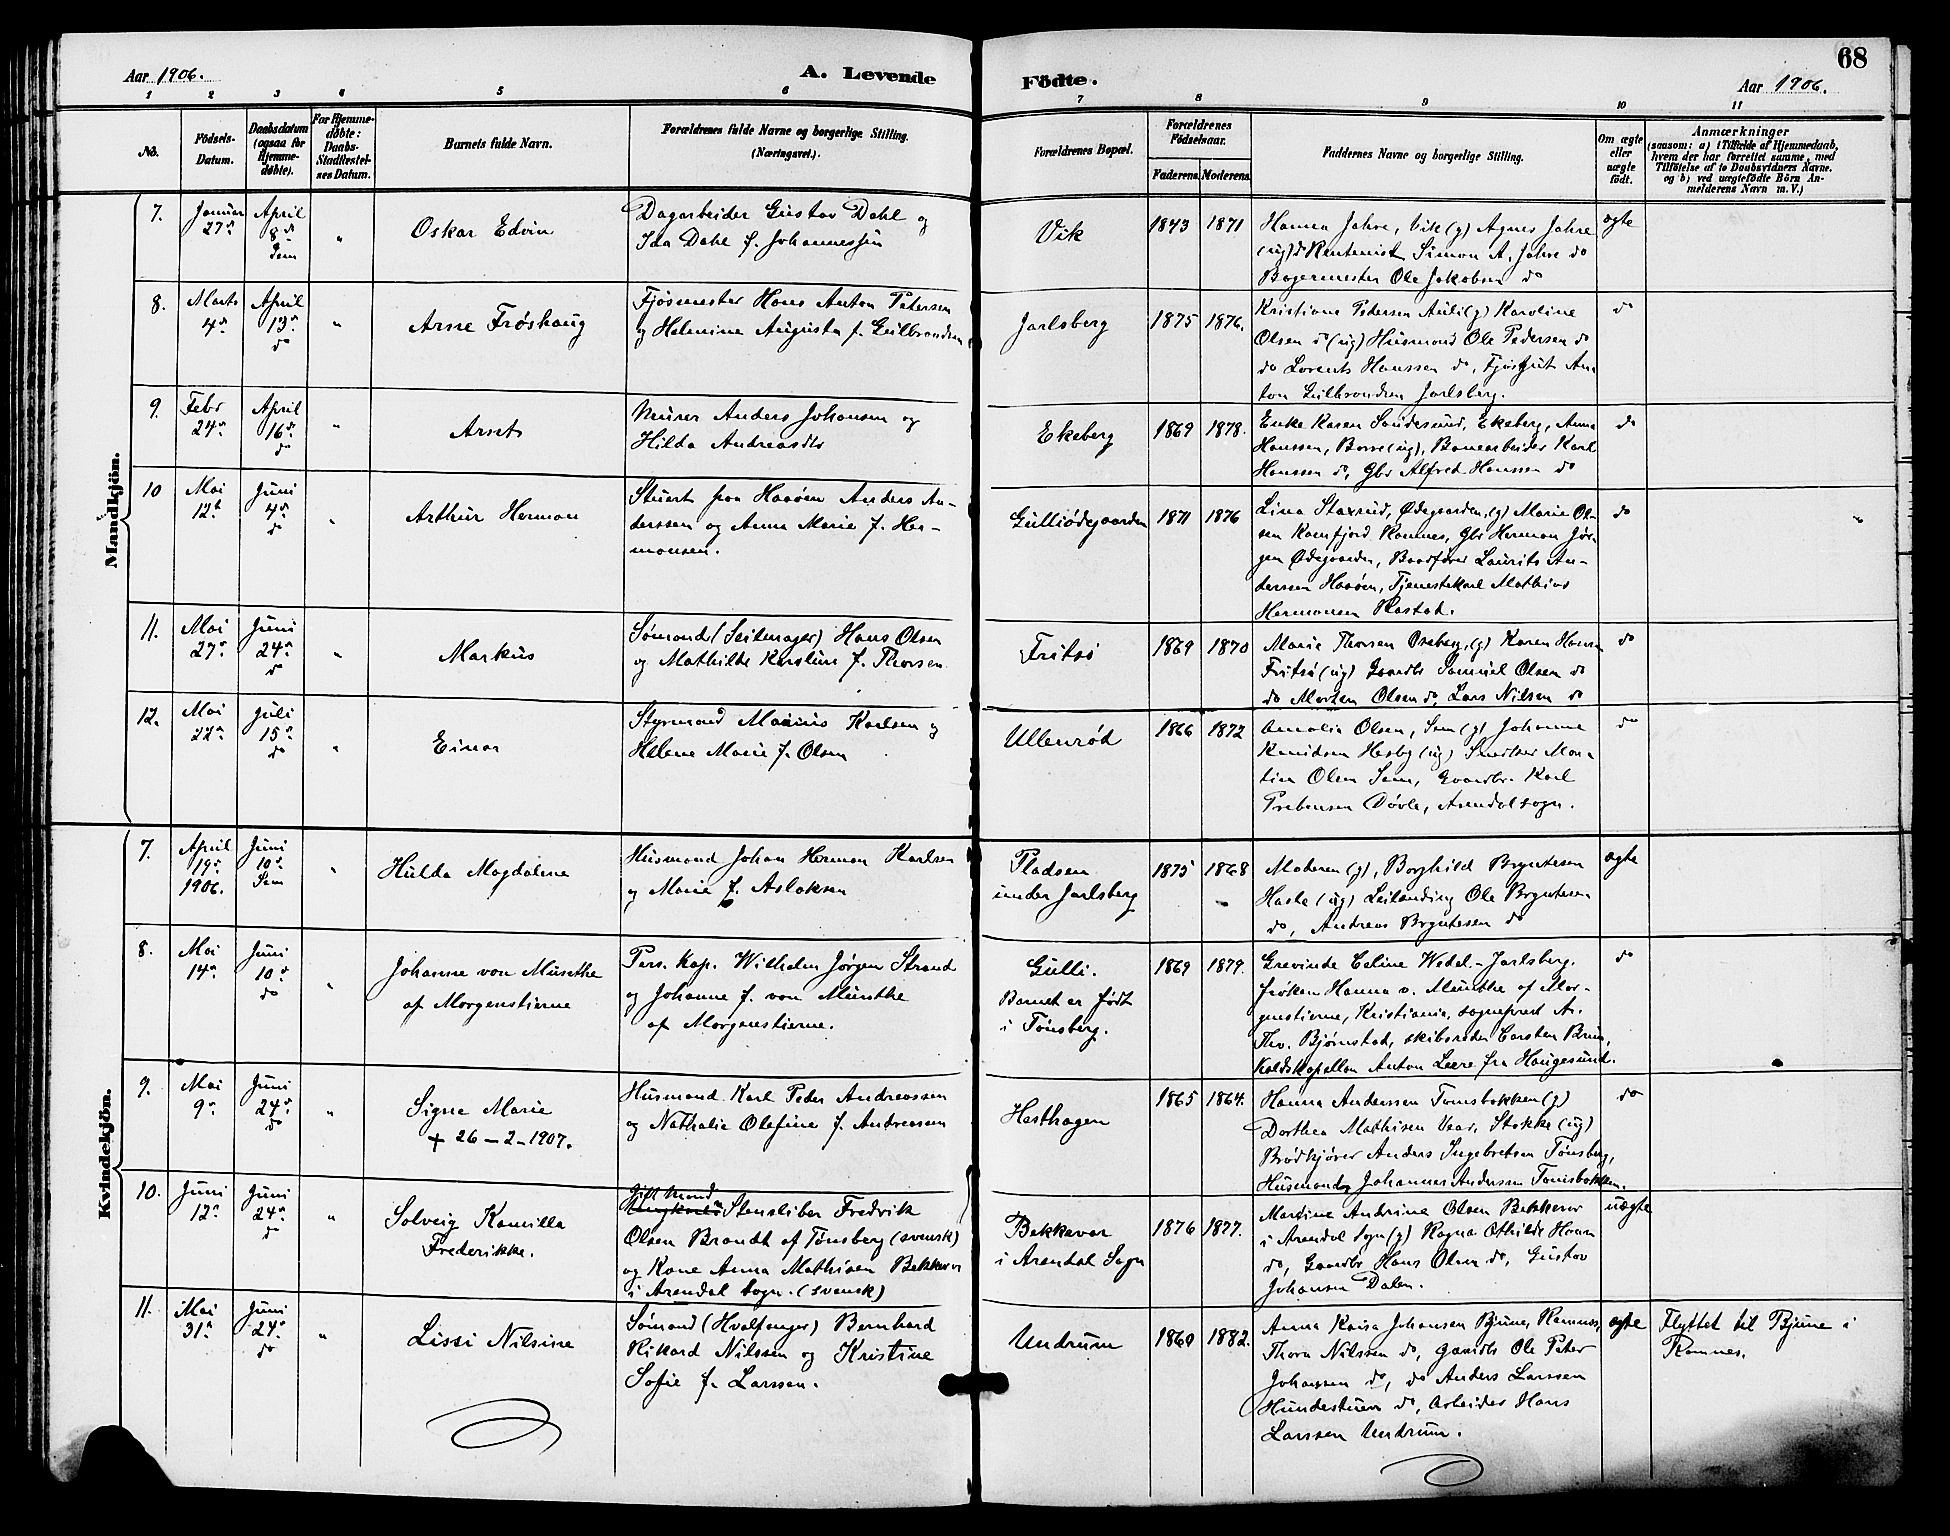 68
Aar 1906.
A. Levende Födte.
Aar 1906.
1 2 3 4 5 6 7 8 9 10 11
No.
Födsels-
Datum.
Daabsdatum
(ogsaa for
Hjemme-
döbte).
For Hjemme-
döbte:
Daabs-
Stadfestel-
ses Datum.
Barnets fulde Navn.
Forældrenes fulde Navne og borgerlige Stilling.
(Næringsvei).
Forældrenes Bopæl.
Forældrenes
Födselsaar.
Faderens. Moderens.
Faddernes Navne og borgerlige Stilling.
Om ægte
eller
uægte
födt.
Anmærkninger
(saasom: a) i Tilfælde af Hjemmedaab,
hvem der har forrettet samme, med
Tilföielse af to Daabsvidners Navne.
og b) ved uægtefödte Börn An-
melderens Navn m. V.)
Mandkjön.
7.
Januar
27de
April
8de
Sem
"
Oskar Edvin
Dagarbeider Gustav Dahl og
Ida Dahl f. Johannessen
Vik
1843 1871
Hanna Jahre, Vik (g) Agnes Jahre
(ug) do Rentenist Simon A. Jahre do
Bagermester Ole Jakobsen do
ægte
8.
Marts
4de
April
13de
do
"
Arne Frøshaug
Fjøsmester Hans Anton Petersen
og Helmine Augusta f. Gulbrandsen
Jarlsberg
1875 1876.
Kristiane Pedersen Auli (g) Karoline
Olsen do (ug) Husmand Ole Pedersen do
do Lorents Hanssen do, Fjøsgut An-
ton Gulbrandsen Jarlsberg.
do
9.
Febr
24de
April
16de
do
"
Arnt
Murer Anders Johansen og
Hilda Andreasdtr
Ekeberg
1869 1878.
Enke Karen Sandesund, Ekeberg, Anna
Hanssen, Borre (ug), Banearbeider Karl
Hanssen do, Gbr Alfred Hanssen do
do
10
Mai
12te
Juni
4de
do
"
Arthur Herman
Stuert paa Haaøen Anders An-
derssen og Anna Marie f. Her-
mansen.
Gulliødegaarden
1871 1876
Lina Staxrud, Ødegaarden, (g) Marie Ol-
sen Ramfjord Ramnes, Gbr Herman Jør-
gen Ødegaarden, Baadfører Laurits An-
derssen Haaøen, Tjenestekarl Mathias
Hermansen Rastad.
do
11.
Mai
27de
Juni
24de
do
"
Markus
Sømand (Seilmager) Hans Olsen
og Mathilde Karoline f. Thorsen
Fritsø
1869 1870
Marie Thorsen Oseberg, (g) Karen Hansen
Fritsø (ug) Gaardbr Samuel Olsen do
do Morten Olsen do, Lars Nilsen do
do
12.
Mai
22de
Juli
15de
do
"
Einar
Styrmand Marius Karlsen og
Helene Marie f. Olsen
Ullenrød
1866 1872
Amalia Olsen, Sem (g) Johanne
Knudsen Hesby (ug) Snedker Mar-
tin Olsen Sem, Gaardbr. Karl
Prebensen Døvle, Arendal sogn.
do
Kvindekjön.
7.
April
19de
1906.
Juni
10de
Sem
"
Hulda Magdalene
Husmand Johan Herman Karlsen
og Marie f. Aslaksen
Pladsen
under Jarlsberg
1875 1868
Moderen (g), Borghild Bryntesen
Haske (ug) Leilending Ole Bryntesen
do, Andreas Bryntesen do
ægte
8.
Mai
14de
Juni
10de
do
"
Johanne von Munthe
af Morgenstierne
Pers. Kap. Wilhelm Jørgen Strand
og Johanne f. von Munthe
af Morgenstierne.
Gulli.
Barnet er født
i Tønsberg.
1869 1879.
Grevinde Celine Wedel-Jarlsberg.
Frøken Hanna v. Munthe af Mor-
genstierne, Kristiania, sognepræst A.
Thv. Bjørnstad, skibsreder Carsten Bruun,
Koldskapellan Anton Leere fra Haugesund.
do
9.
Mai
9de
Juni
24de
do
"
Signe Marie
+ 26 - 2 - 1907.
Husmand Karl Peder Andreassen
og Nathalie Olefine f. Andreassen
Hesthagen
1865 1864.
Hanna Anderssen Tomsbakken (g)
Dorthea Mathisen Vear, Stokke (ug)
Brødkjører Anders Ingebretsen Tønsberg,
Husmand Johannes Anderssen Tomsbakken.
do
10.
Juni
12te
Juni
24de
do
"
Solveig Kamilla
Frederikke.
Gift Mand
Stensliber Fredrik
Olsen Brandt af Tønsberg (svensk)
og Kone Anna Mathisen Bekkevar
i Arendal sogn. (svensk)
Bekkevar
i Arendal Sogn
1876 1877.
Martine Andrine Olsen Bekkevar
i Arendal Sogn (g) Ragna Othilde Hansen
do, Gaardbr Hans Olsen do, Gustav
Johansen Dalen.
uægte
11.
Mai
31te
Juni
24de
do
"
Lissi Nilsine
Sømand (Hvalfanger) Bernhard
Rikard Nilssen og Kristine
Sofie f. Larssen.
Undrum
1860 1882.
Anna Kaisa Johansen Bjune, Ramnes,
Thora Nilssen do, Gaardbr Ole Peter
Johansen do, do Anders Larssen
Hundestuen do, Arbeider Hans
Larssen Undrum.
ægte
Flyttet til Bjune i
Ramnes.